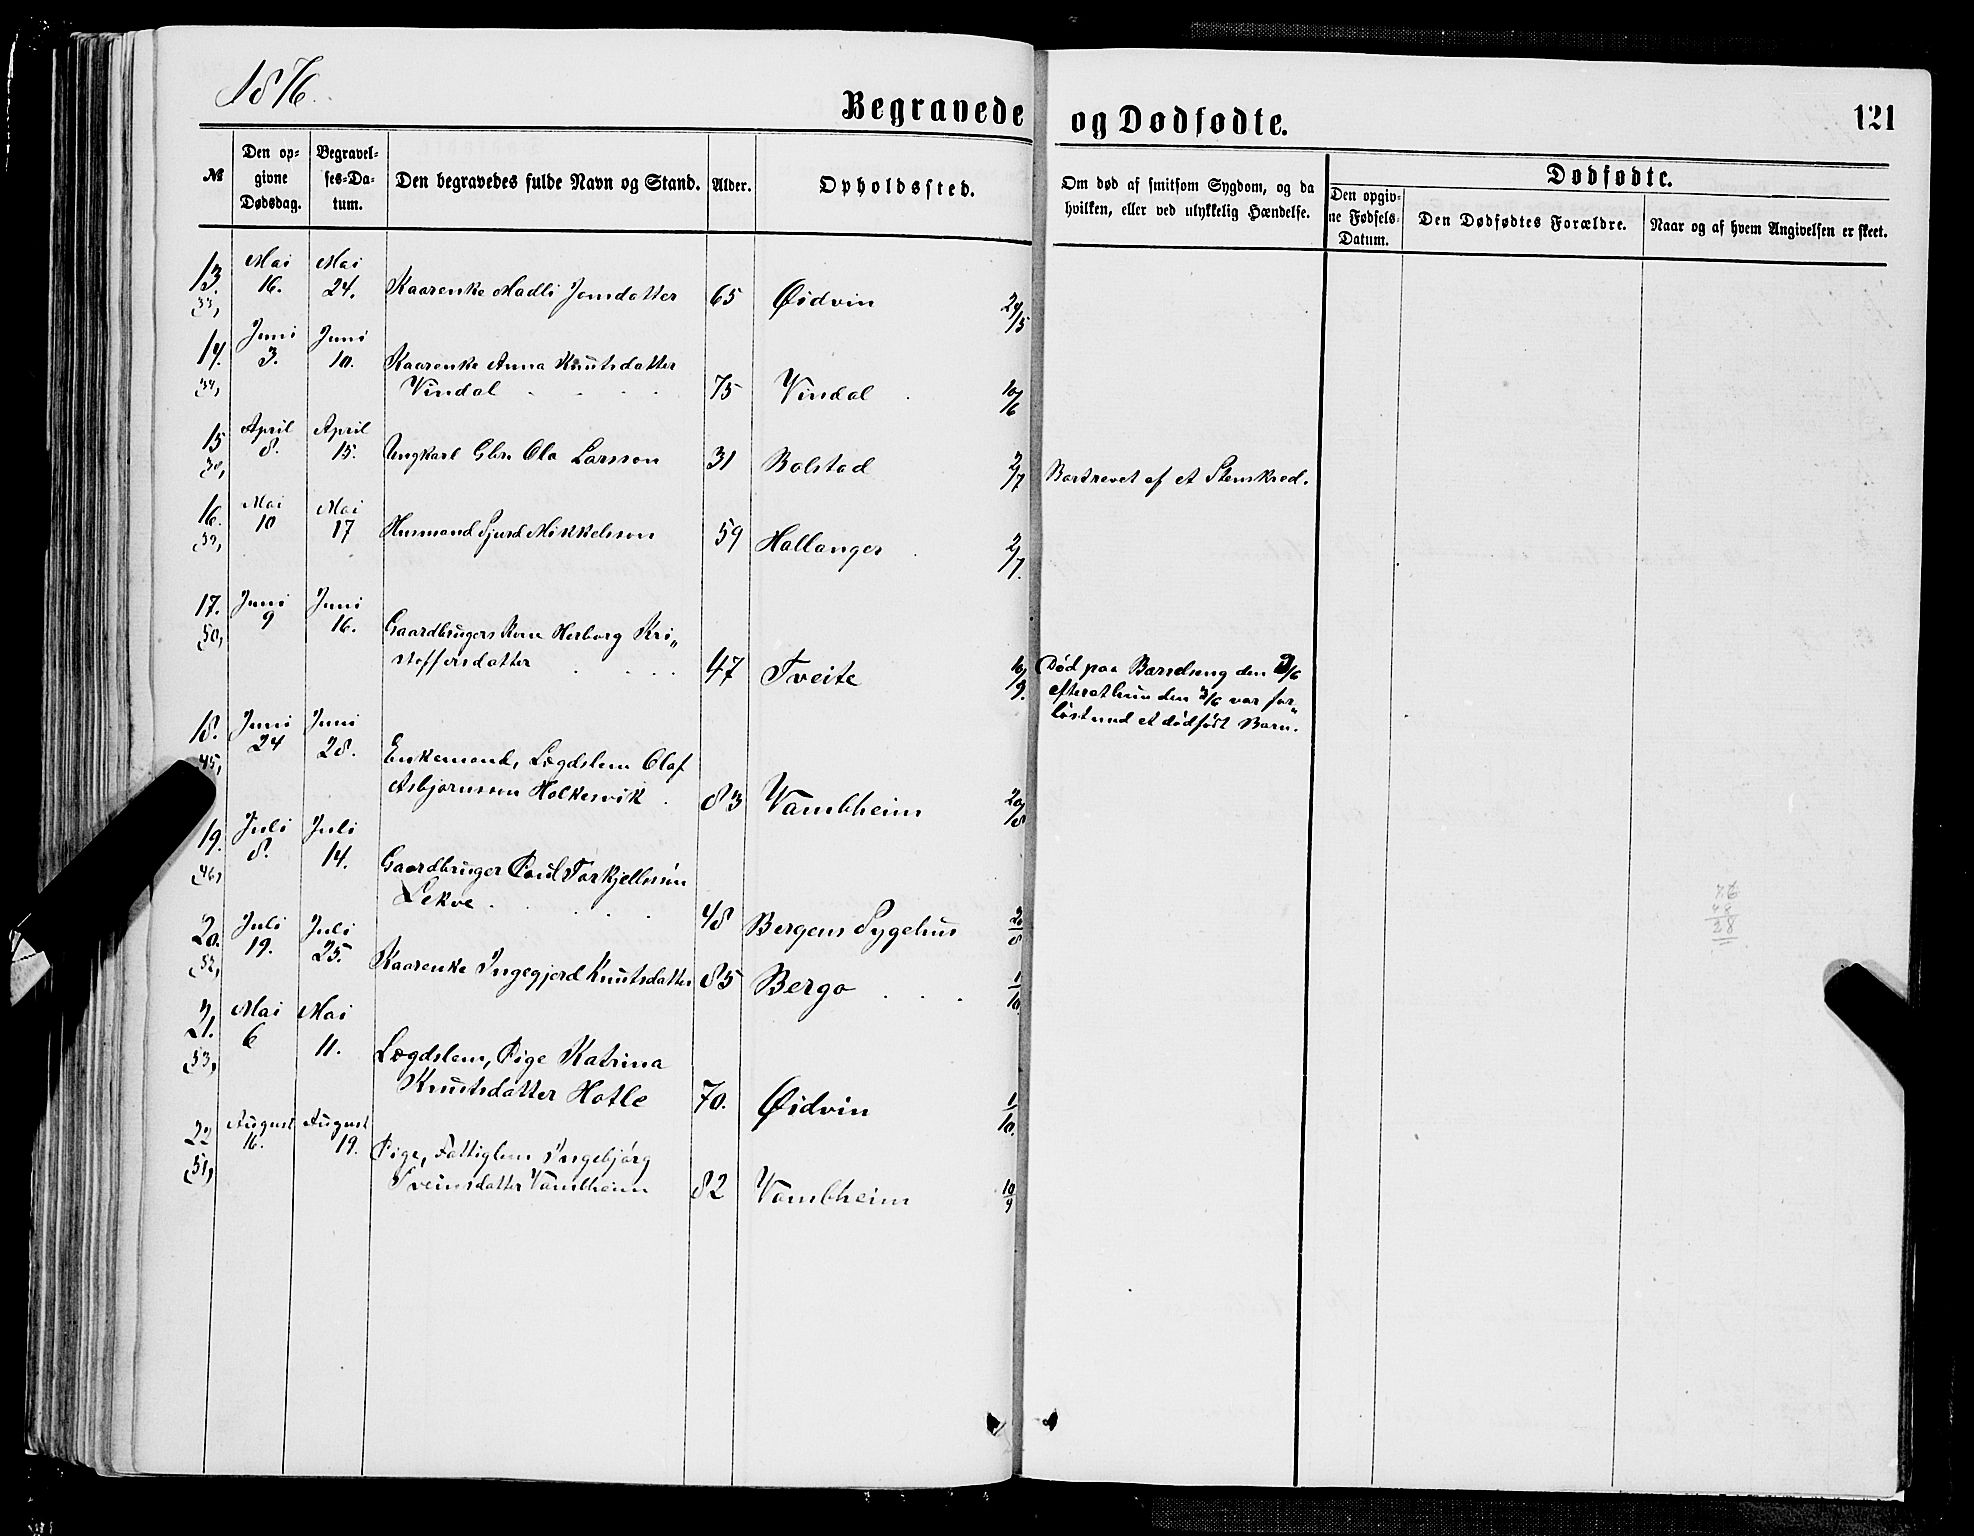 1876.
Begravede og Dødfødte.
121
№
Den opgivne Dødsdag.
Begravelses-Datum.
Den begravedes fulde Navn og Stand.
Alder.
Opholdssted.
Om død af smitsom Sygdom, og da hvilken, eller ved ulykkelig Hændelse.
Dødfødte.
Den opgivne Fødsels-Datum.
Den Dødfødtes Forældre.
Naar og af hvem Angivelsen er skeet.
13. Mai 16. Mai 24. Kaarenke Madli Jonsdatter 65 Øidvin 24/5
33,
14. Juni 3. Juni 10. Kaarenke Anna Knutsdatter
Vindal 75 Vindal 10/6
34,
15 April 8. April 15. Ungkarl Gbr. Ola Larsson 31 Bolstad 2/7 Bortrevet af et Stenskred.
38,
16. Mai 10 Mai 17 Husmand Sjurd Mikkelsson 59 Hallanger 2/7.
39,
17. Juni 9 Juni 16. Gaardbrugers Kone Herborg Kri„
stoffersdatter 47 Tveite 16/9. Død paa Barselseng den 9/6
50,
efterat hun den 3/6 var for„
løst med et dødfødt Barn.
18. Juni 24 Juni 28. Enkemand, Lægdslem Olaf
Asbjørnsson Holkesvik 83 Vambheim 20/8
45,
19. Juli 8. Juli 14. Gaardbruger Poul Torkjellssøn
Lekve 48 Bergens Sygehus 20/8
46,
20. Juli 19. Juli 25. Kaarenke Ingegjerd Knutsdatter 85 Bergo 1/10.
52,
21. Mai 6 Mai 11. Lægdslem, Pige Katrina
Knutsdatter Hotle 70. Øidvin 1/10.
53,
22 August 16. August 19. Pige, Fattiglem Ingebjørg
Sveinsdatter Vambheim 82 Vambheim 10/9
51,
28